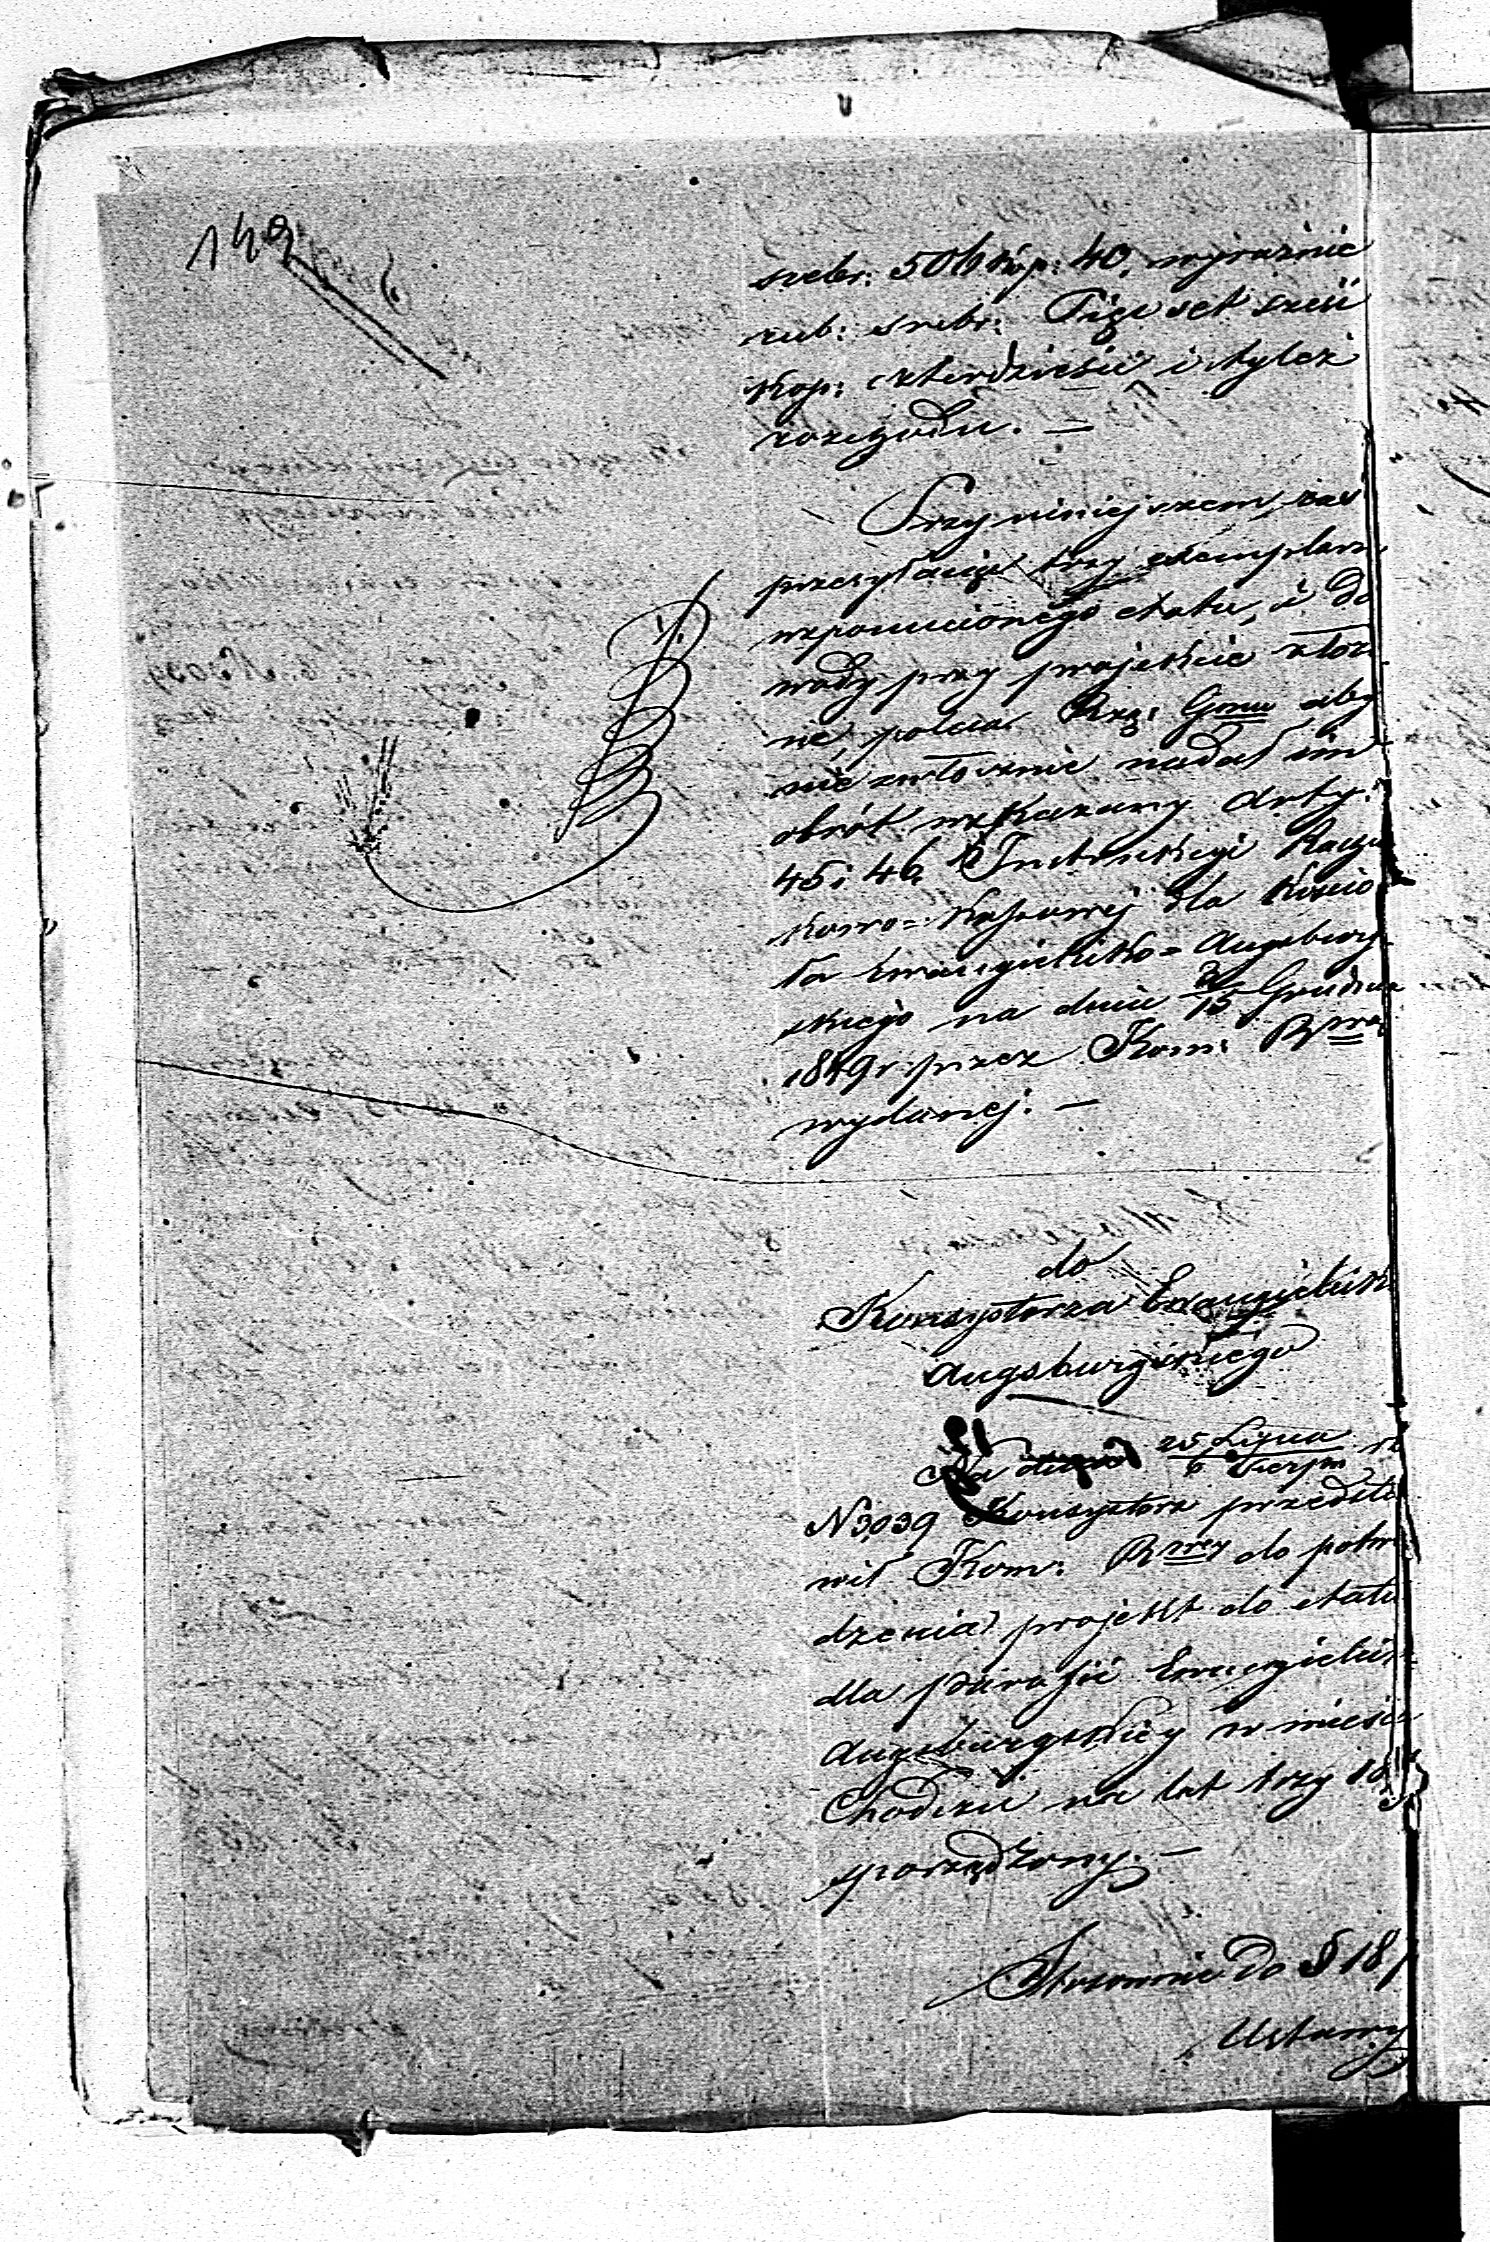 142
srebr: 506 kop: 40, wyraźnie
rub: srebr: Pięćset sześć
Kop: czterdzieści i tyleż
rozchodu. —
Przy niniejszem zaś
przesyłając trzy exemplarze
wspomnionego etatu, i do
wody przy projekcie złożo
ne, poleca Rzą: Gmu aby
nie zwłocznie nadał im
obrót wskazany Arty:
45 i 46 Instrukcyi Rachun
kowo-Kassowej dla Kościo
ła Ewangielicko-Augsburg
skiego na dniu 3/15 Grudnia
1849 r. przez Kom: Rwą
wydanej. —
do
Konsystorza Ewangielick
Augsburgskiego
Na dniu 25 Lipca / 6 Sierpn
N 3039 Konsystorz przedsta
wił Kom: Rwey do potwier
dzenia projekt do etatu
dla parafii Ewangielick
Augsburgskiey w mieście
Chodczu na lat trzy
sporządzony. —
Stosownie do § 18
Ustawy